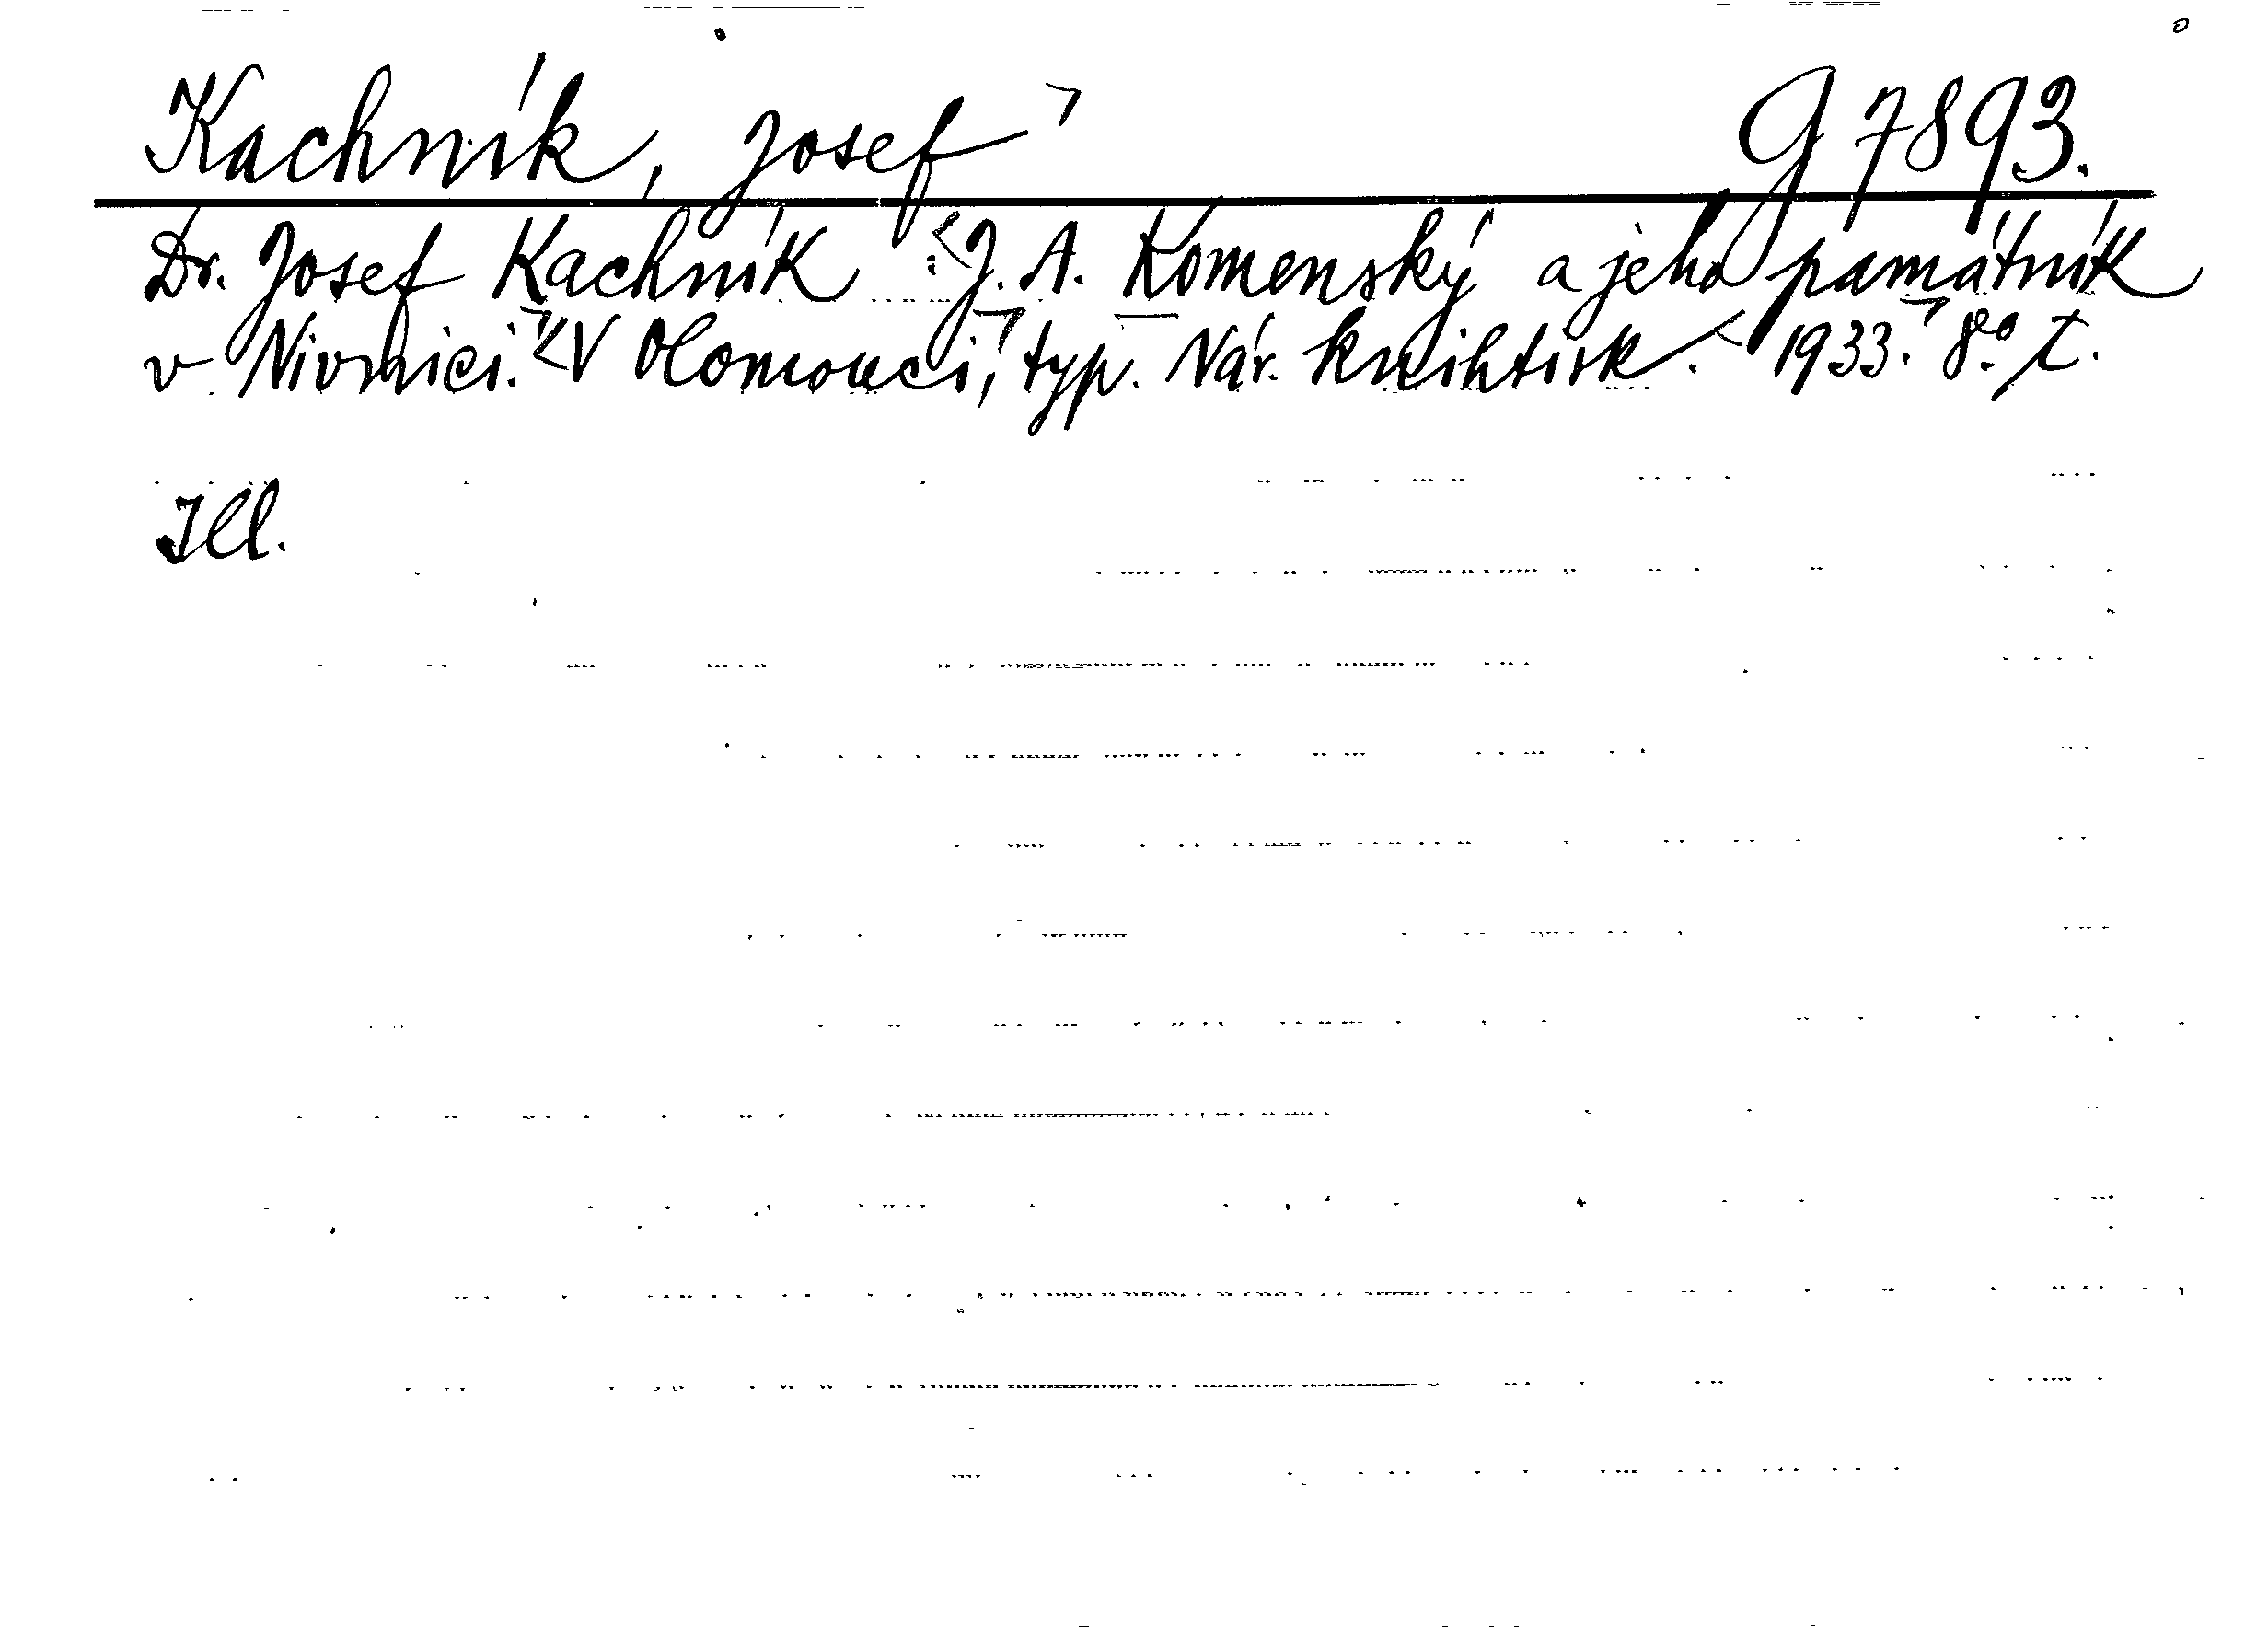 Kachník, Josef G 7893.
Dr. Josef Kachník : J. A. Komenský a jeho památník
v Nivnici. V Olomouci, typ. Nár. knihtisk. 1933. 8° t.
Ill.